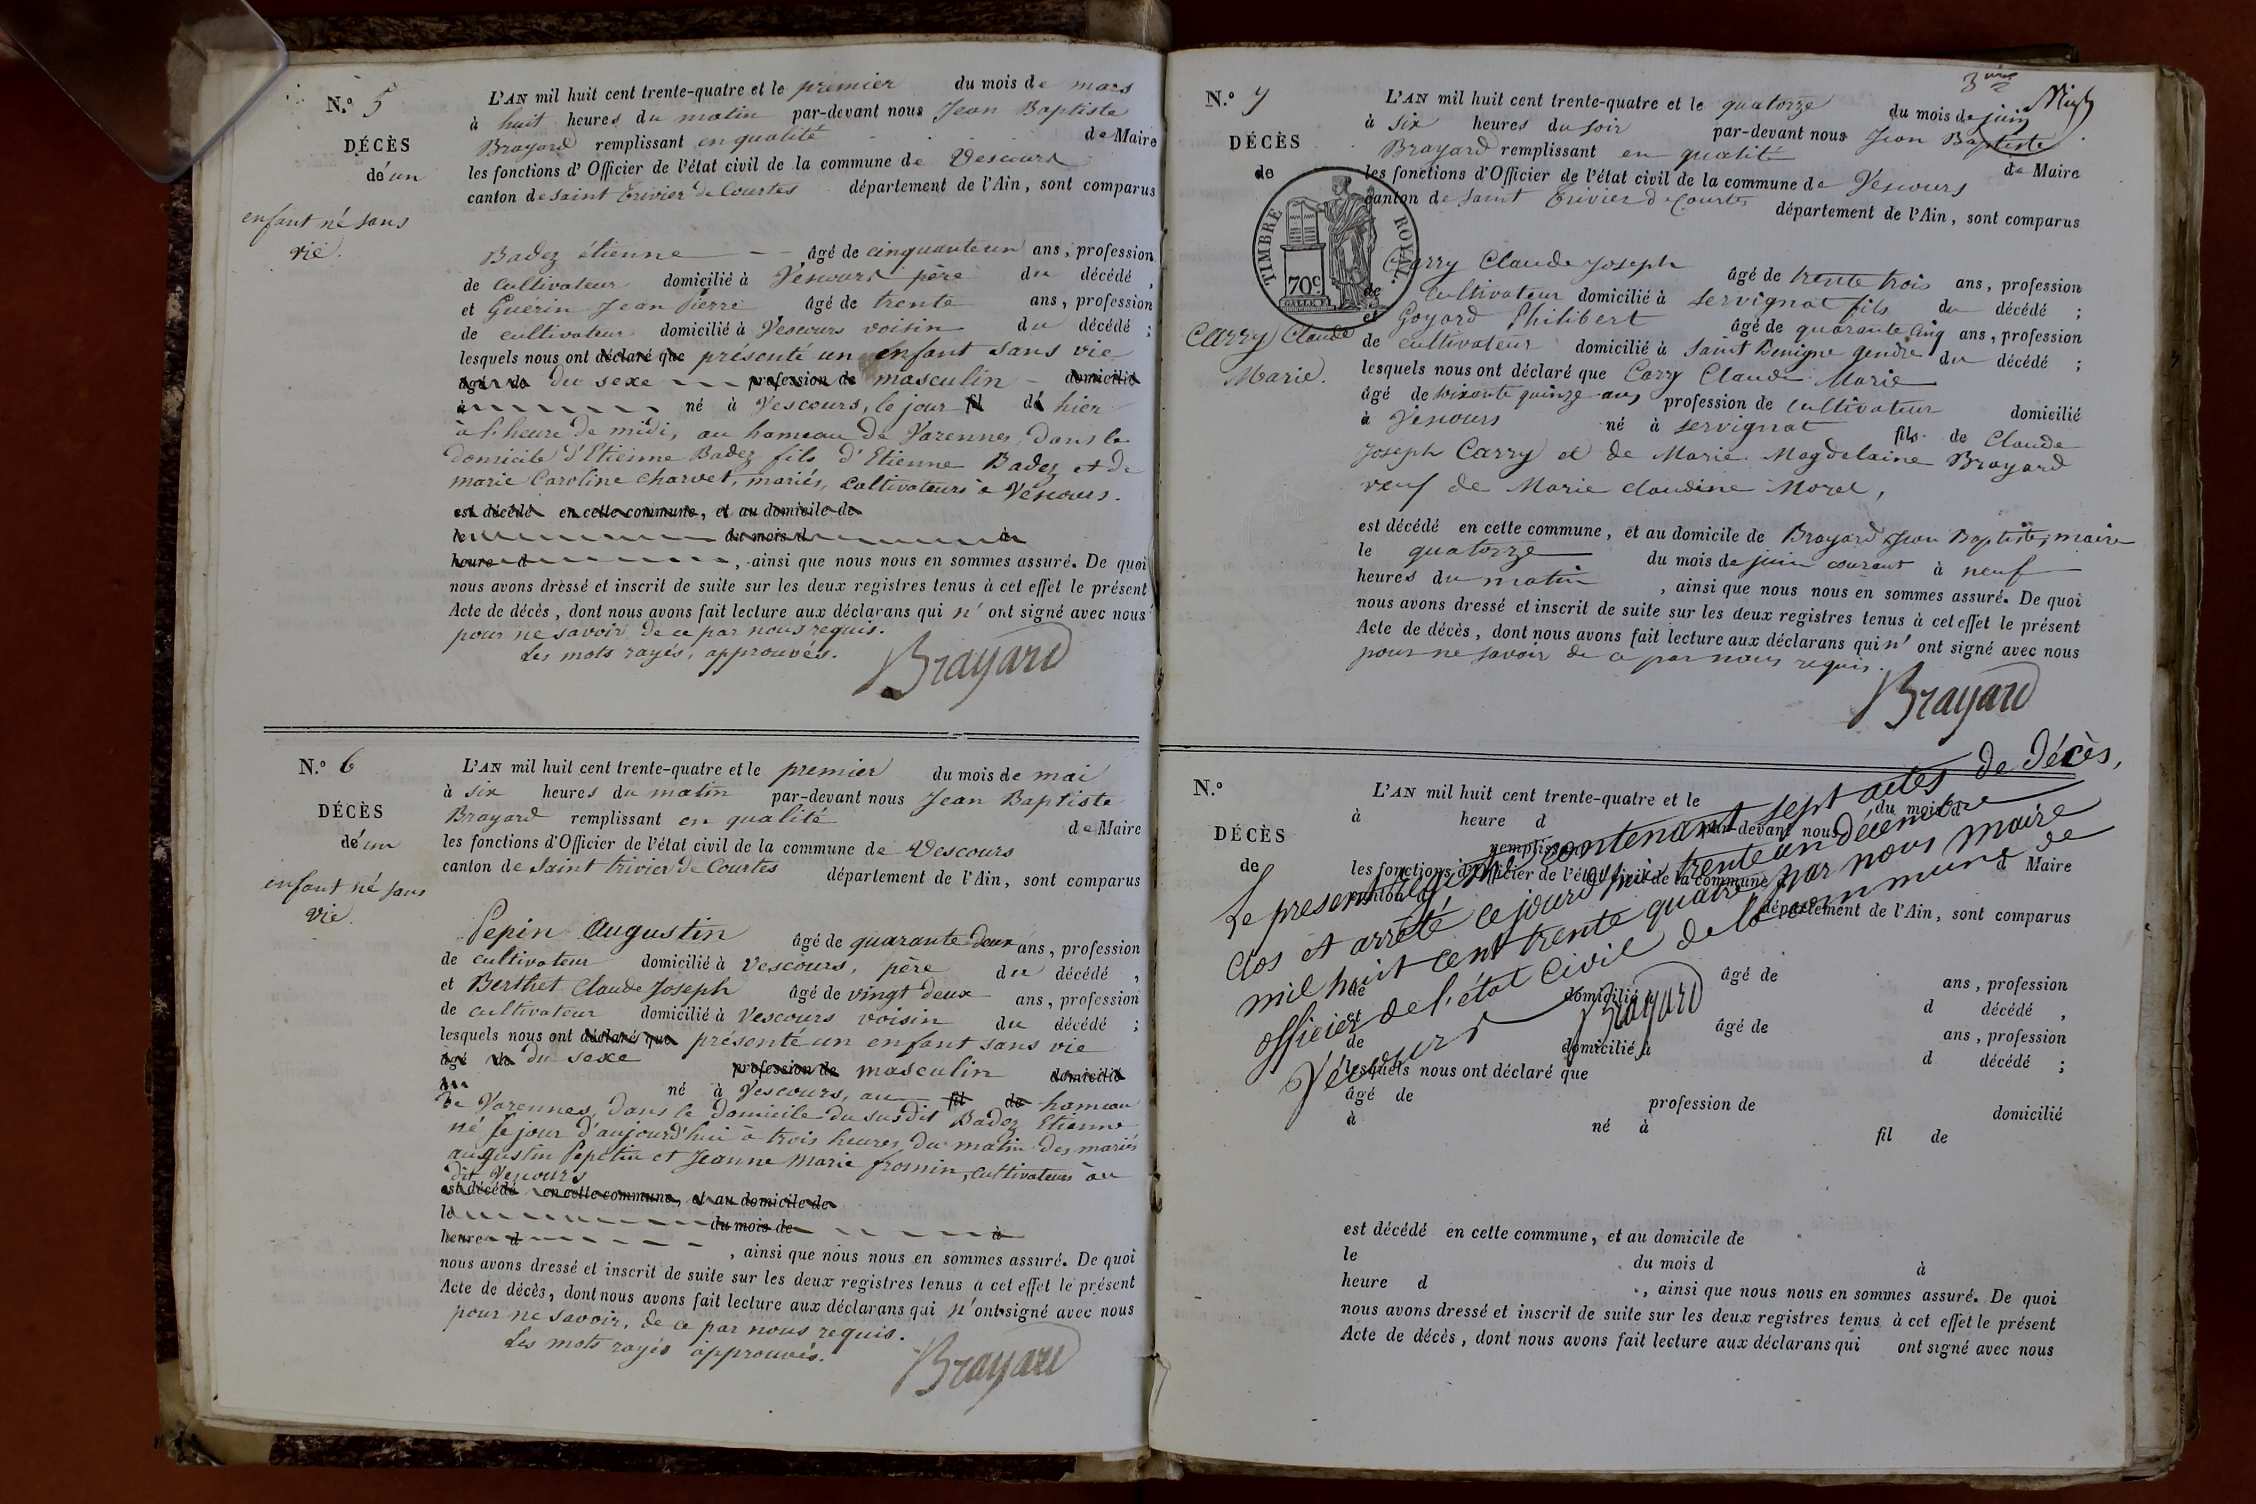 N.° 5
DÉCÈS
de un
enfant né sans
vie.
L'AN mil huit cent trente-quatre et le premier du mois de mars
à huit heures du matin par-devant nous Jean Baptiste
Brayard remplissant en qualité de Maire
les fonctions d'Officier de l'état civil de la commune de Vescours
canton de saint Trivier de Courtes département de l'Ain, sont comparus
Badez étienne âgé de cinquante un ans, profession
de cultivateur domicilié à Vescours père du décédé,
et Guérin Jean Pierre âgé de trente ans, profession
de cultivateur domicilié à Vescours voisin du décédé;
lesquels nous ont déclaré que présenté un enfant sans vie
âgé de du sexe profession de masculin domicilié
à né à Vescours, le jour fil de hier
à l'heure de midi, au hameau de Varennes, dans le
domicile d'Etienne Badez fils d'Etienne Badez et de
marie Caroline Charvet, mariés, cultivateurs à Vescours.
est décédé en cette commune, et au domicile de
le du mois d à
heure d, ainsi que nous nous en sommes assuré. De quoi
nous avons dressé et inscrit de suite sur les deux registres tenus à cet effet le présent
Acte de décès, dont nous avons fait lecture aux déclarans qui n'ont signé avec nous
pour ne savoir de ce par nous requis.
Les mots rayés, approuvés.
Brayard
N.° 6
DÉCÈS
de un
enfant né sans
vie.
L'AN mil huit cent trente-quatre et le premier du mois de mai
à six heures du matin par-devant nous Jean Baptiste
Brayard remplissant en qualité de Maire
les fonctions d'Officier de l'état civil de la commune de Vescours
canton de saint trivier de Courtes département de l'Ain, sont comparus
Pepin Augustin âgé de quarante deux ans, profession
de cultivateur domicilié à Vescours, père du décédé,
et Berthet Claude Joseph âgé de vingt deux ans, profession
de cultivateur domicilié à Vescours voisin du décédé;
lesquels nous ont déclaré que présenté un enfant sans vie
âgé de du sexe profession de masculin domicilié
né à Vescours, au fil de hameau
de Varennes, dans le domicile du susdit Badez Etienne
né le jour d'aujourd'hui à trois heures du matin des mariés
augustin et Jeanne Marie fromin, cultivateurs au
dit Vescours
est décédé en cette commune, et au domicile de
le du mois de à
heure d, ainsi que nous nous en sommes assuré. De quoi
nous avons dressé et inscrit de suite sur les deux registres tenus à cet effet le présent
Acte de décès, dont nous avons fait lecture aux déclarans qui n'ont signé avec nous
pour ne savoir, de ce par nous requis.
Les mots rayés approuvés.
Brayard
N.° 7
DÉCÈS
de
TIMBRE ROYAL.
70c.
Carry Claude
Marie.
L'AN mil huit cent trente-quatre et le quatorze du mois de juin
à six heures du soir par-devant nous Jean Baptiste
Brayard remplissant en qualité de Maire
les fonctions d'Officier de l'état civil de la commune de Vescours
canton de saint Trivier de Courtes département de l'Ain, sont comparus
Carry Claude Joseph âgé de trente trois ans, profession
de cultivateur domicilié à servignat fils du décédé;
et Goyard Philibert âgé de quarante cinq ans, profession
de cultivateur domicilié à saint Benigne gendre du décédé;
lesquels nous ont déclaré que Carry Claude Marie
âgé de soixante quinze ans, profession de cultivateur domicilié
à Vescours né à servignat fils de Claude
Joseph Carry et de Marie Magdelaine Brayard
veuf de Marie claudine Morel,
est décédé en cette commune, et au domicile de Brayard Jean Baptiste, maire
le quatorze du mois de juin courant à neuf
heures du matin, ainsi que nous nous en sommes assuré. De quoi
nous avons dressé et inscrit de suite sur les deux registres tenus à cet effet le présent
Acte de décès, dont nous avons fait lecture aux déclarans qui n'ont signé avec nous
pour ne savoir de ce par nous requis.
Brayard
N.°
DÉCÈS
de
L'AN mil huit cent trente-quatre et le du mois d
à heure d par-devant nous
remplissant d Maire
les fonctions d'Officier de l'état civil de la commune d
canton d département de l'Ain, sont comparus
Le present registre contenant sept actes de décès,
clos et arrêté ce jourd'hui trente un décembre
mil huit cent trente quatre, par nous maire
officier de l'état civil de la commune de
Vescours
Brayard
âgé de ans, profession
de domicilié à d décédé,
et âgé de ans, profession
de domicilié à d décédé;
lesquels nous ont déclaré que
âgé de profession de domicilié
à né à fil de
est décédé en cette commune, et au domicile de
le du mois d à
heure d, ainsi que nous nous en sommes assuré. De quoi
nous avons dressé et inscrit de suite sur les deux registres tenus à cet effet le présent
Acte de décès, dont nous avons fait lecture aux déclarans qui ont signé avec nous